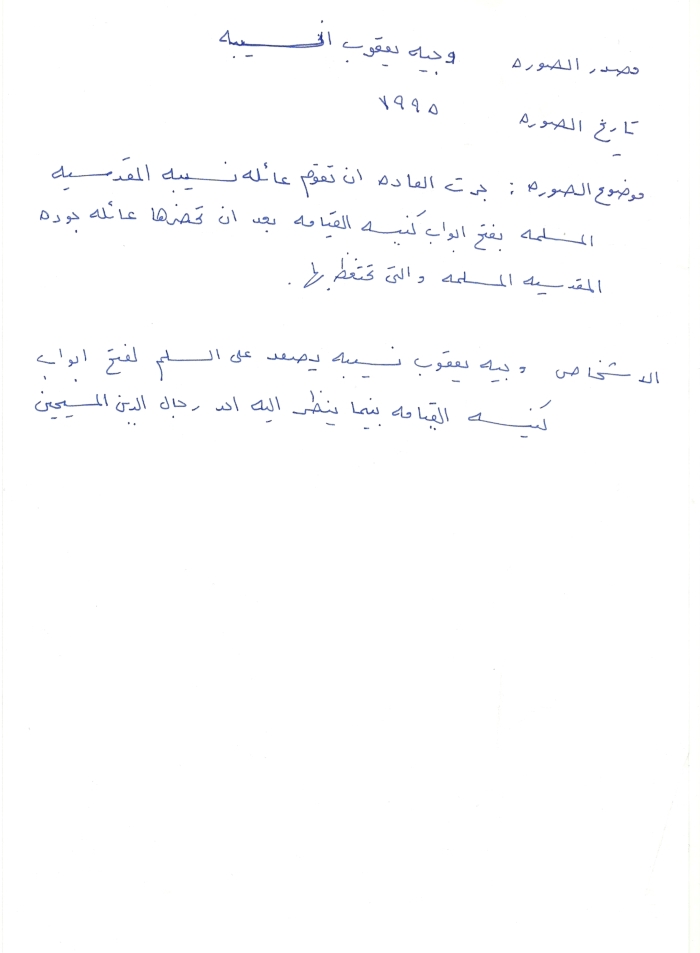 مصدر الصوره وجيه يعقوب
تاريخ الصوره ١٩٩٥
موضوع الصوره : جرت العاده ان تقوم عائله نسيبه المقدسيه
المسلمه بفتح ابواب كنيسه القيامه بعد ان تحضرها عائله جوده
المقدسيه المسلمه والتي تحتفظ بها .
الاشخاص وجيه يعقوب نسيبه يصعد على السلم لفتح ابواب
كنيسه القيامه بينما ينظر اليه احد رجال الدين المسيحين